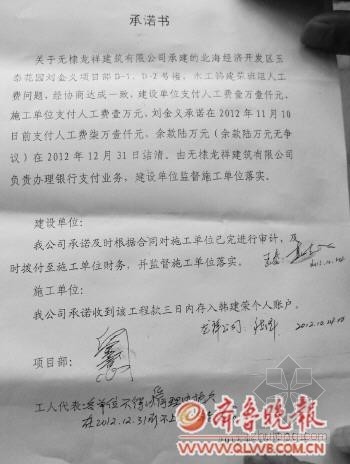 承诺书
关于无棣龙祥建筑有限公司承建的北海经济开发区玉
泰花园刘金义项目部D-1、D-2号楼,木工韩建荣班组人工
费问题,经协商达成一致,建设单位支付人工费壹万壹仟元,
施工单位支付人工费壹万元,刘金义承诺在2012年11月10
日前支付人工费柒万壹仟元,余款陆万元(余款陆万元无争
议)在2012年12月31日结清。由无棣龙祥建筑有限公司
负责办理银行支付业务,建设单位监督施工单位落实。
建设单位:
我公司承诺及时根据合同对施工单位已完进行审计,及
时拨付至施工单位财务,并监督施工单位落实。
2012.10.24
施工单位:
我公司承诺收到该工程款三日内存入韩建荣个人账户。
龙祥公司: 2012.10.24
项目部:
工人代表:各单位不得以任何
在2012.12.31前不上
齐鲁晚报
QLWB.COM.CN